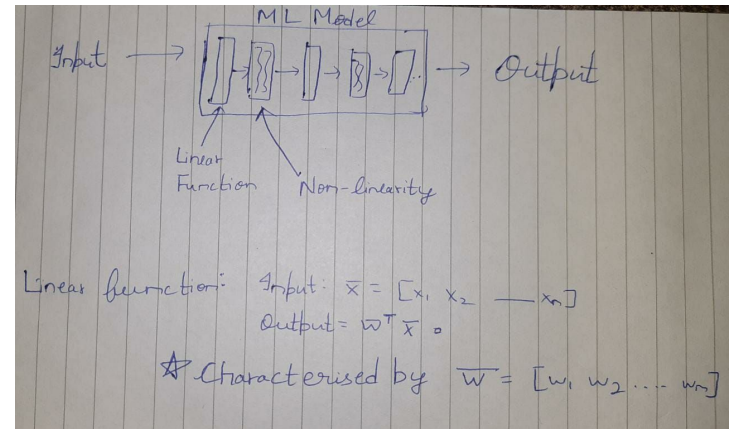 ML Model
Input → → → → → ... → Output
Linear
Function
Non-linearity
Linear function: Input: x̅ = [x₁ x₂ —— xₙ]
Output = w̅ᵀ x̅ .
☆ Characterised by w̅ = [w₁ w₂ .... wₙ]